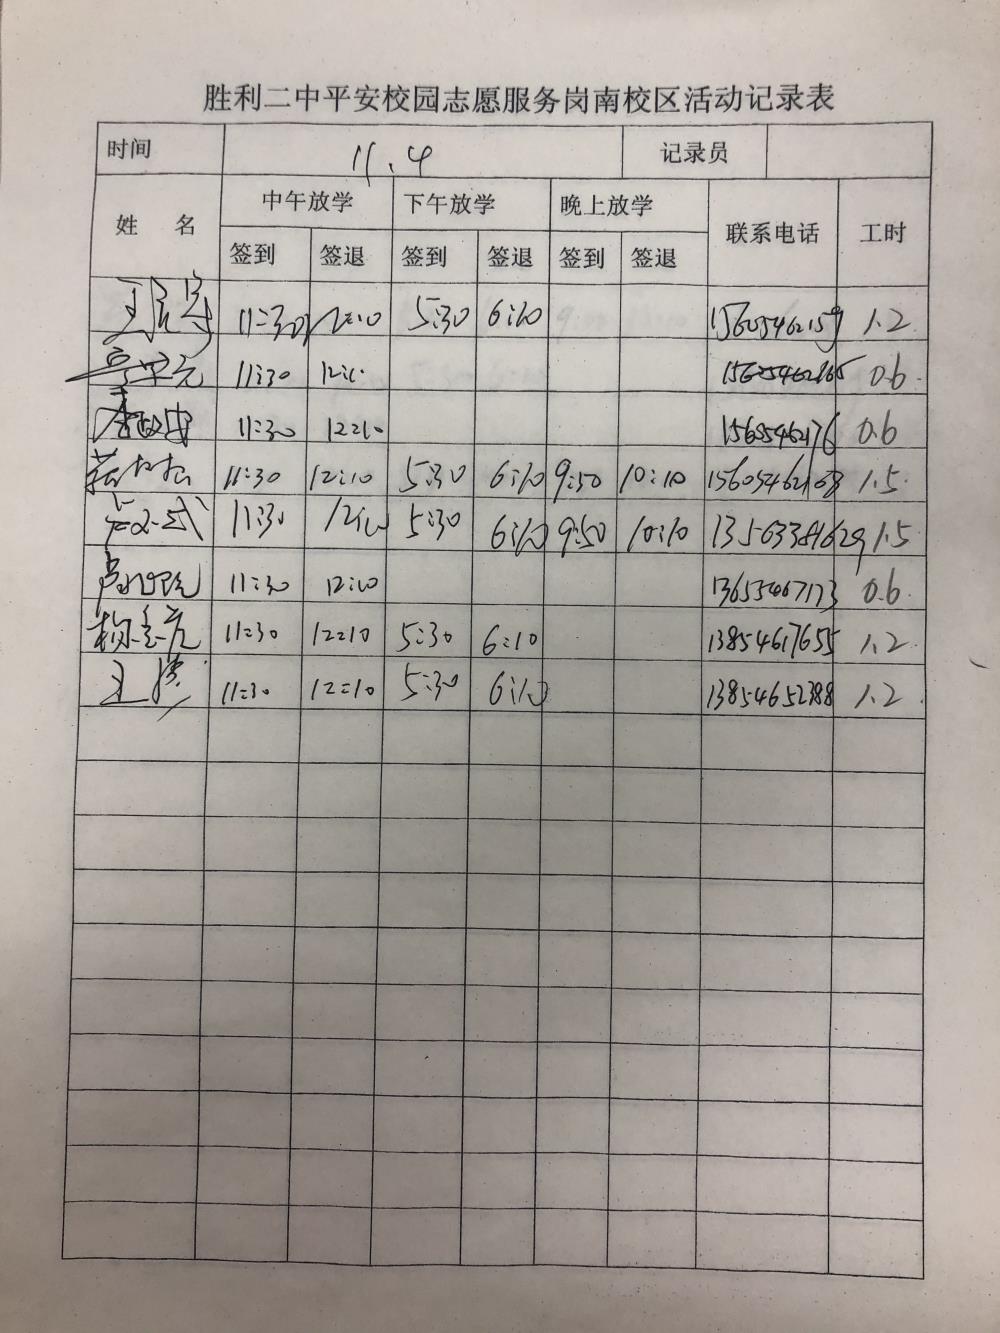 胜利二中平安校园志愿服务岗南校区活动记录表
时间 11.4 记录员
姓 名 中午放学 下午放学 晚上放学 联系电话 工时
签到 签退 签到 签退 签到 签退
11:30 12:10 5:30 6:10 15605462159 1.2
11:30 12:10 0.6
11:30 12:10 0.6
11:30 12:10 5:30 6:10 9:50 10:10 15605462168 1.5
11:30 12:10 5:30 6:10 9:50 10:10 13563381629 1.5
11:30 12:10 13655467173 0.6
11:30 12:10 5:30 6:10 13854617655 1.2
11:30 12:10 5:30 6:10 13854652388 1.2